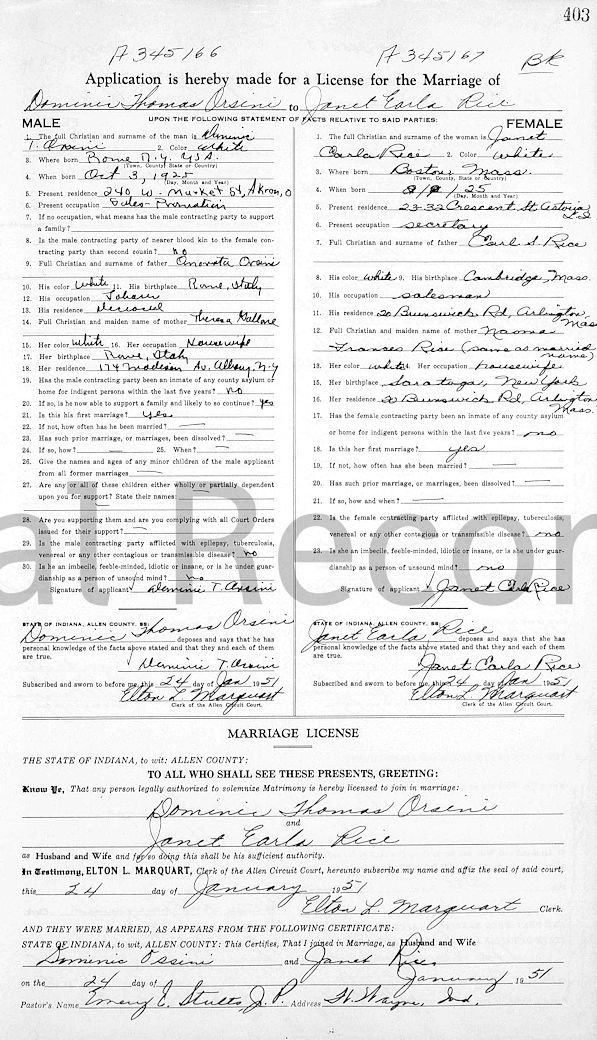 403
A 345166 A 345167 BK
Application is hereby made for a License for the Marriage of
Dominic Thomas Orsini to Janet Earla Rice
UPON THE FOLLOWING STATEMENT OF FACTS RELATIVE TO SAID PARTIES:
MALE
1. The full Christian and surname of the man is Dominic
T. Orsini 2. Color White
3. Where born Rome N.Y. USA.
(Town, County, State or Country)
4. When born Oct 3, 1925
(Day, Month and Year)
5. Present residence 240 W. Market St, Akron, O
6. Present occupation Sales-Promotion
7. If no occupation, what means has the male contracting party to support
a family?
8. Is the male contracting party of nearer blood kin to the female con-
tracting party than second cousin? no
9. Full Christian and surname of father Orsini
10. His color White 11. His birthplace Rome, Italy
12. His occupation
13. His residence Deceased
14. Full Christian and maiden name of mother Theresa
15. Her color White 16. Her occupation Housewife
17. Her birthplace Rome, Italy
18. Her residence 174 Madison Av. Albany, N-Y
19. Has the male contracting party been an inmate of any county asylum or
home for indigent persons within the last five years? no
20. If so, is he now able to support a family and likely to so continue? yes
21. Is this his first marriage? yes
22. If not, how often has he been married?
23. Has such prior marriage, or marriages, been dissolved?
24. If so, how? 25. When?
26. Give the names and ages of any minor children of the male applicant
from all former marriages
27. Are any or all of these children either wholly or partially dependent
upon you for support? State their names:
28. Are you supporting them and are you complying with all Court Orders
issued for their support?
29. Is the male contracting party afflicted with epilepsy, tuberculosis,
venereal or any other contagious or transmissible disease? no
30. Is he an imbecile, feeble-minded, idiotic or insane, or is he under guar-
dianship as a person of unsound mind? no
Signature of applicant Dominic T. Orsini
STATE OF INDIANA, ALLEN COUNTY, SS:
Dominic Thomas Orsini deposes and says that he has
personal knowledge of the facts above stated and that they and each of them
are true.
Dominic T. Orsini
Subscribed and sworn to before me, this 24 day of Jan 1951
Elton L. Marquart
Clerk of the Allen Circuit Court.
FEMALE
1. The full Christian and surname of the woman is Janet
Earla Rice 2. Color White
3. Where born Boston Mass.
(Town, County, State or Country)
4. When born /25
(Day, Month and Year)
5. Present residence 23-32 Crescent St. Astoria L.I.
6. Present occupation secretary
7. Full Christian and surname of father Earl S. Rice
8. His color white 9. His birthplace Cambridge, Mass.
10. His occupation salesman
11. His residence 20 Brunswick Rd, Arlington, Mass
12. Full Christian and maiden name of mother Naoma
Frances Rice (same as married name)
13. Her color white 14. Her occupation housewife
15. Her birthplace Saratoga, New York
16. Her residence 20 Brunswick Rd, Arlington Mass.
17. Has the female contracting party been an inmate of any county asylum
or home for indigent persons within the last five years? no
18. Is this her first marriage? yes
19. If not, how often has she been married?
20. Has such prior marriage, or marriages, been dissolved?
21. If so, how and when?
22. Is the female contracting party afflicted with epilepsy, tuberculosis,
venereal or any other contagious or transmissible disease? no
23. Is she an imbecile, feeble-minded, idiotic or insane, or is she under guar-
dianship as a person of unsound mind? no
Signature of applicant Janet Earla Rice
STATE OF INDIANA, ALLEN COUNTY, SS:
Janet Earla Rice deposes and says that she has
personal knowledge of the facts above stated and that they and each of them
are true.
Janet Earla Rice
Subscribed and sworn to before me, this 24 day of Jan 1951
Elton L. Marquart
Clerk of the Allen Circuit Court.
al Recor
MARRIAGE LICENSE
THE STATE OF INDIANA, to wit: ALLEN COUNTY:
TO ALL WHO SHALL SEE THESE PRESENTS, GREETING:
Know Ye, That any person legally authorized to solemnize Matrimony is hereby licensed to join in marriage:
Dominic Thomas Orsini
and
Janet Earla Rice
as Husband and Wife and for so doing this shall be his sufficient authority.
In Testimony, ELTON L. MARQUART, Clerk of the Allen Circuit Court, hereunto subscribe my name and affix the seal of said court,
this 24 day of January 1951
Elton L. Marquart Clerk.
AND THEY WERE MARRIED, AS APPEARS FROM THE FOLLOWING CERTIFICATE:
STATE OF INDIANA, to wit, ALLEN COUNTY: This Certifies, That I joined in Marriage, as Husband and Wife
Dominic Ossini and Janet Rice
on the 24 day of January 1951
Pastor's Name Emery E. Stults, J.P. Address Ft. Wayne, Ind.